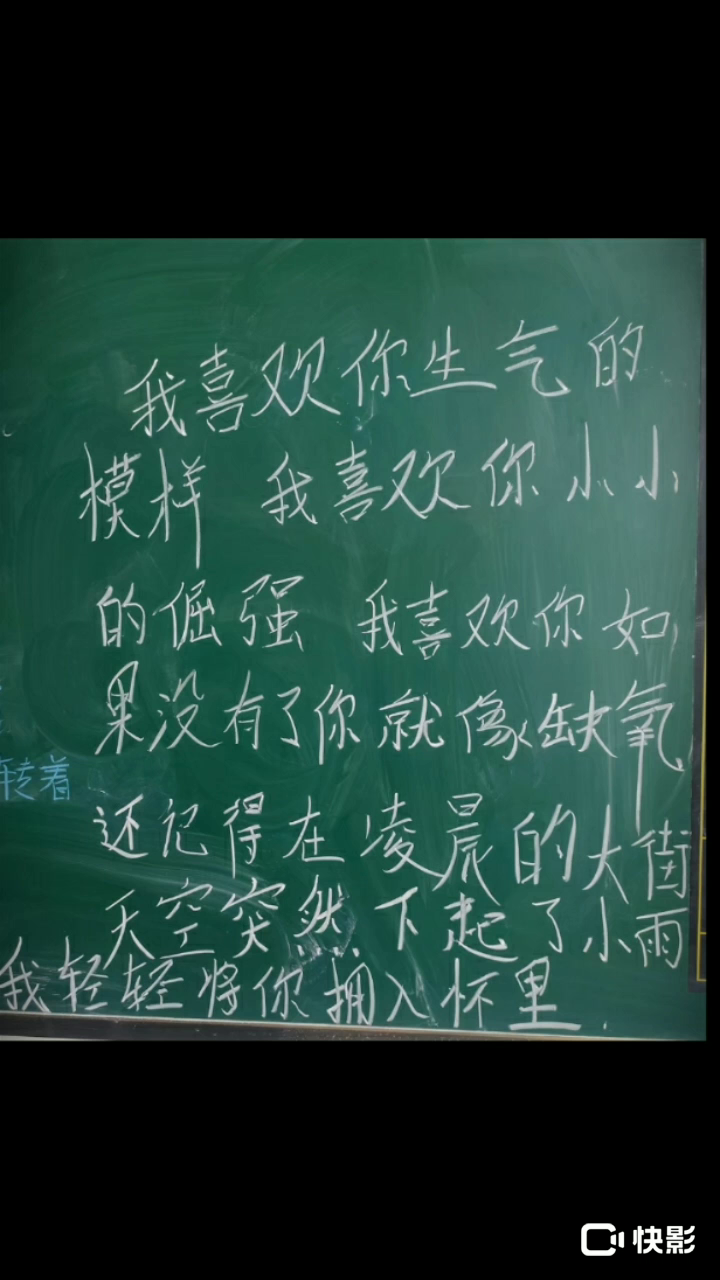 我喜欢你生气的
模样 我喜欢你小小
的倔强 我喜欢你如
果没有了你就像缺氧
转着
还记得在凌晨的大街
天空突然下起了小雨
我轻轻将你拥入怀里.
快影